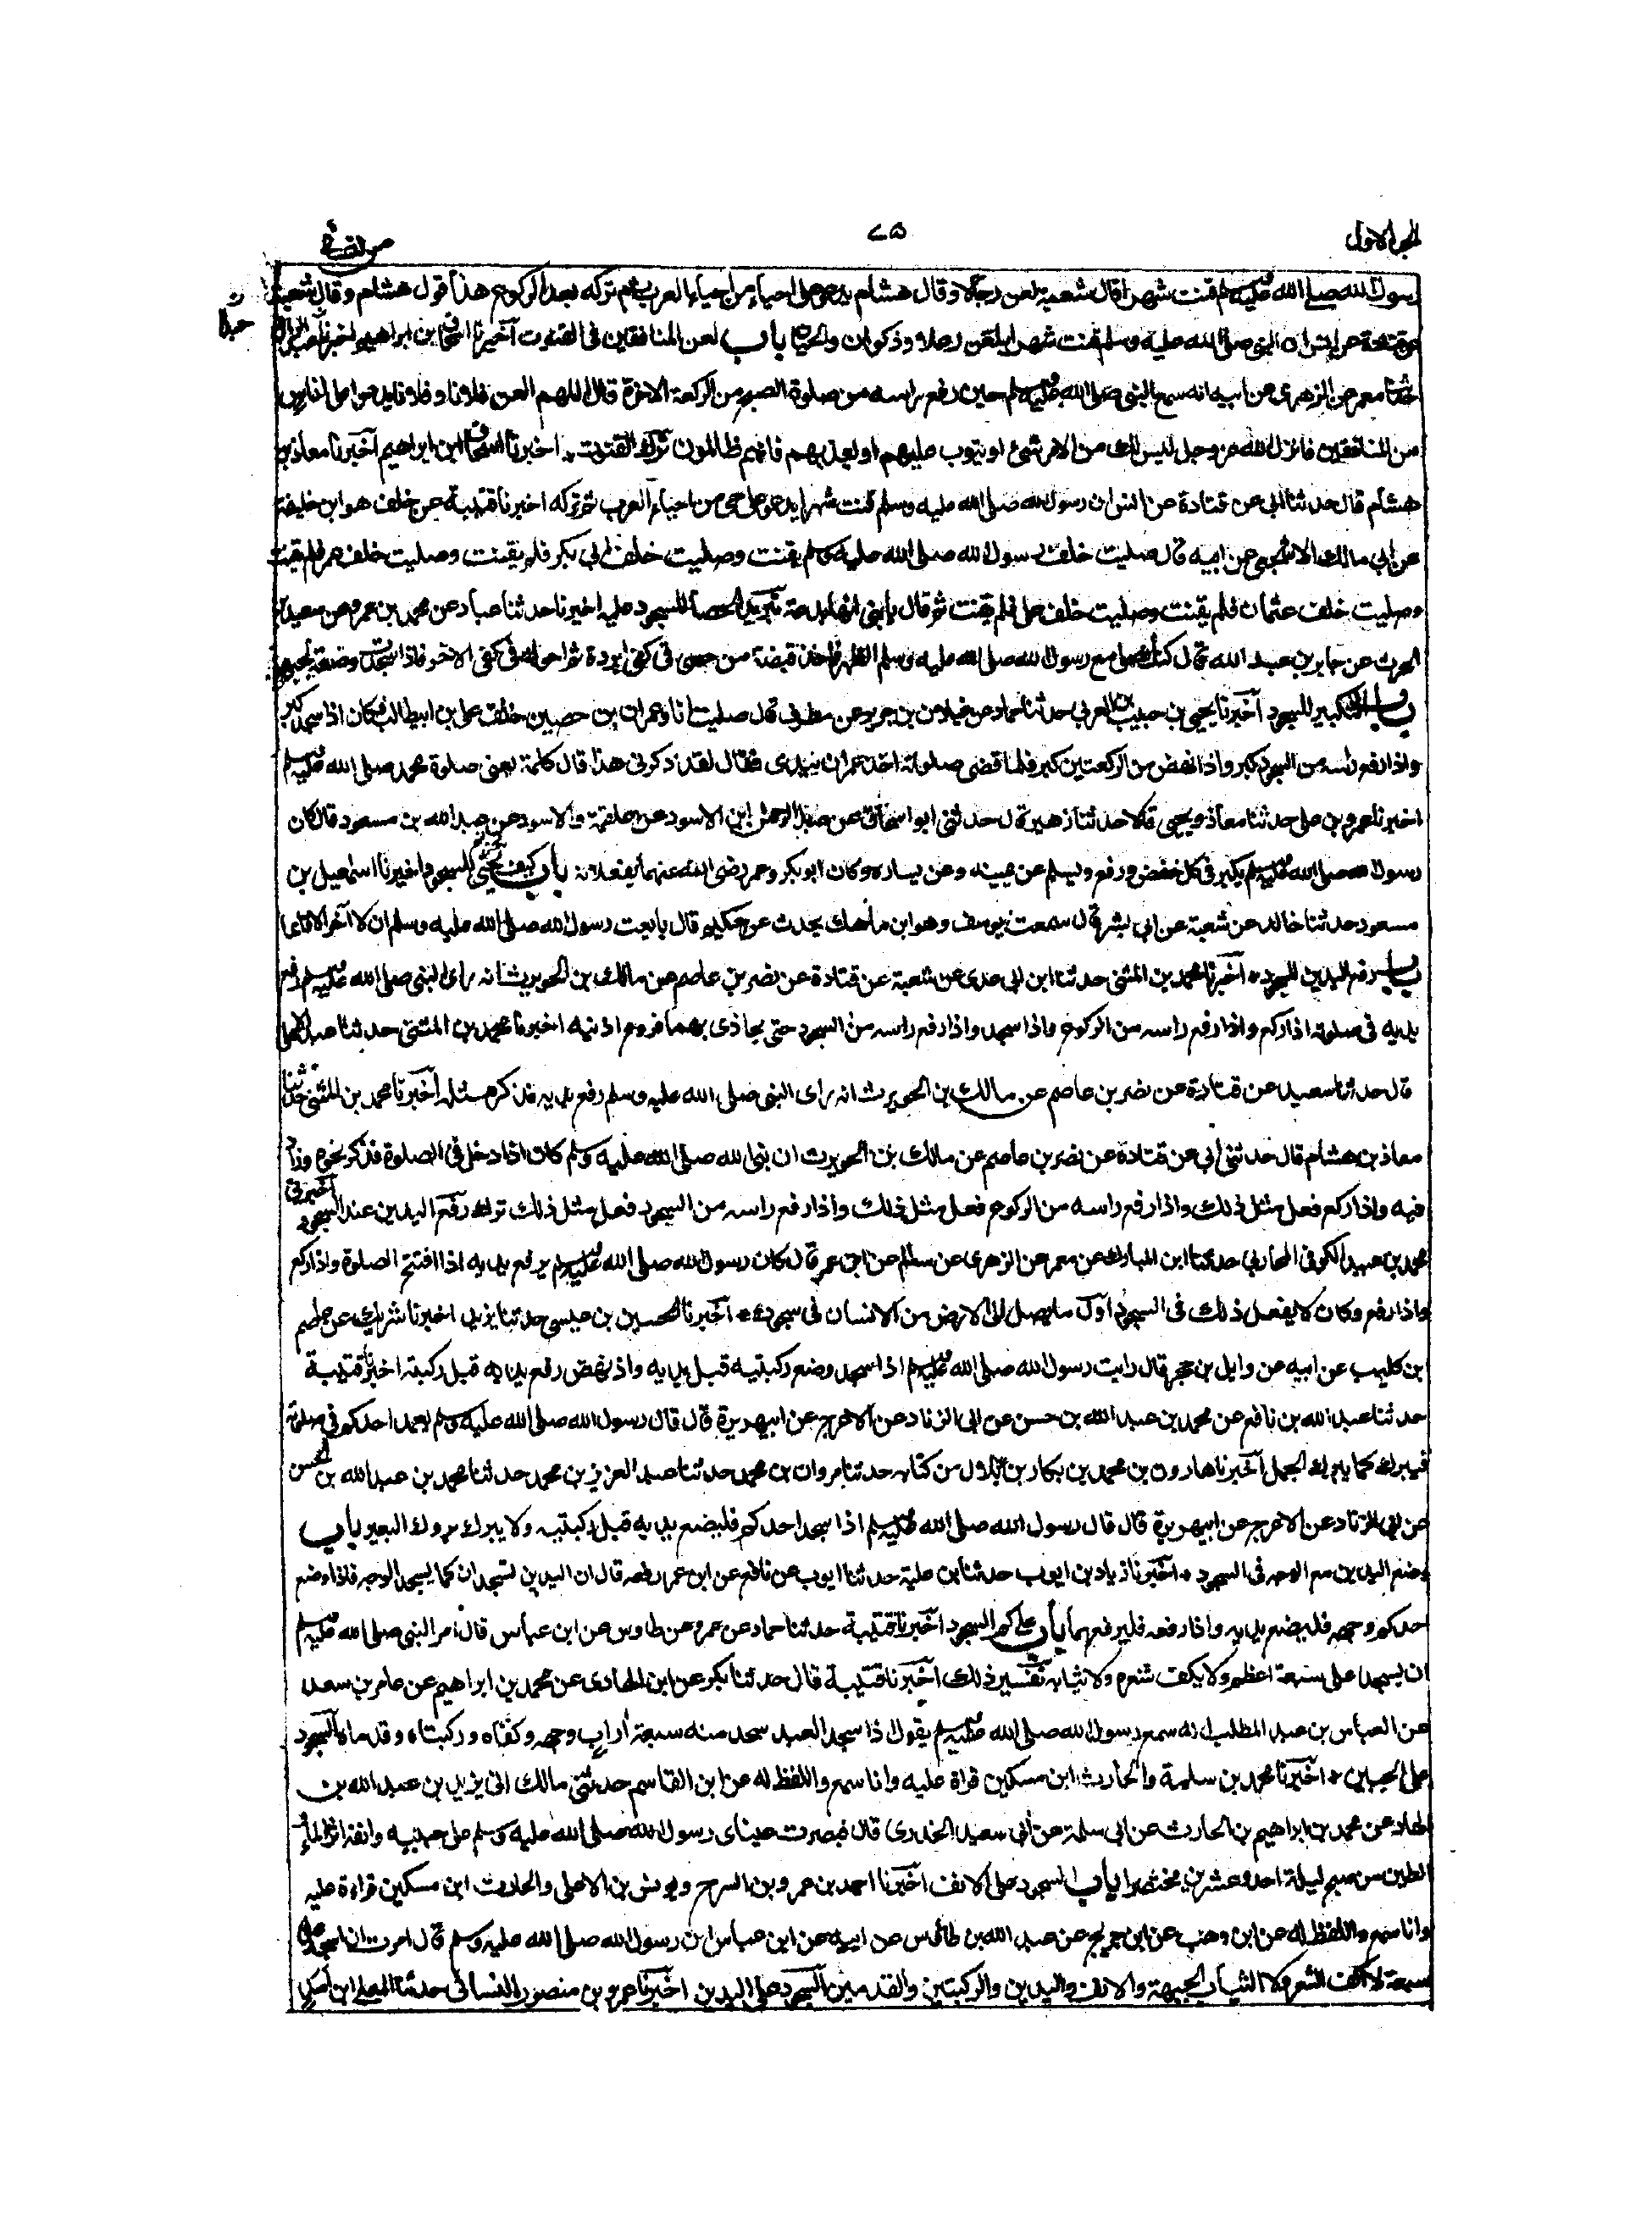 الجزء الاول
٧٥
من نسائي
رسول الله صلى الله عليه وسلم قنت شهرا قال شعبة لعن رجالا وقال هشام يدعو على احياء من احياء العرب ثم تركه بعد الركوع هذا قول هشام وقال شعبة
عن قتادة عن انس ان النبي صلى الله عليه وسلم قنت شهرا يلعن رعلا وذكوان ولحيان باب لعن المنافقين في القنوت اخبرنا اسحاق بن ابراهيم اخبرنا عبد الرزاق
حدثنا معمر عن الزهري عن ابيه انه سمع النبي صلى الله عليه وسلم حين رفع راسه من صلوة الصبح من الركعة الاخرة قال اللهم العن فلانا وفلانا يدعو على اناس
من المنافقين فانزل الله عز وجل ليس لك من الامر شئ او يتوب عليهم او يعذبهم فانهم ظالمون ترك القنوت اخبرنا اسحاق ابن ابراهيم اخبرنا معاذ بن
هشام قال حدثنا ابي عن قتادة عن انس ان رسول الله صلى الله عليه وسلم قنت شهرا يدعو على حي من احياء العرب ثم تركه اخبرنا قتيبة عن خلف هو ابن خليفة
عن ابي مالك الاشجعي عن ابيه قال صليت خلف رسول الله صلى الله عليه وسلم فلم يقنت وصليت خلف ابي بكر فلم يقنت وصليت خلف عمر فلم يقنت
وصليت خلف عثمان فلم يقنت وصليت خلف علي فلم يقنت ثم قال يا بني انها بدعة تبريد الحصا للسجود عليه اخبرنا حدثنا عباد عن محمد بن عمرو عن سعيد بن
الحرث عن جابر بن عبد الله قال كنا نصلي مع رسول الله صلى الله عليه وسلم الظهر فاخذ قبضة من حصى في كفي ابرده ثم احوله في كفي الاخر فاذا سجدت وضعته لجبهتي
باب التكبير للسجود اخبرنا يحيى بن حبيب بن العربي حدثنا حماد عن غيلان بن جرير عن مطرف قال صليت انا وعمران بن حصين خلف علي بن ابيطالب فكان اذا سجد كبر
واذا رفع راسه من السجود كبر واذا نهض من الركعتين كبر فلما قضى صلوته اخذ عمران بيدي فقال لقد ذكرني هذا قال كلمة يعني صلوة محمد صلى الله عليه وسلم
اخبرنا عمرو بن علي حدثنا معاذ ويحيى قالا حدثنا زهير قال حدثني ابو اسحاق عن عبد الرحمن ابن الاسود عن علقمة والاسود عن عبد الله بن مسعود قال كان
رسول الله صلى الله عليه وسلم يكبر في كل خفض ورفع ويسلم عن يمينه وعن يساره وكان ابو بكر وعمر رضي الله عنهما يفعلانه باب كيف يحني للسجود اخبرنا اسمعيل بن
مسعود حدثنا خالد عن شعبة عن ابي بشر قال سمعت يوسف وهو ابن ماهك يحدث عن حكيم قال بايعت رسول الله صلى الله عليه وسلم ان لا آخر الا قائما
باب رفع اليدين للسجود اخبرنا محمد بن المثنى حدثنا ابن ابي عدي عن شعبة عن قتادة عن نصر بن عاصم عن مالك بن الحويرث انه راى النبي صلى الله عليه وسلم رفع
يديه في صلوته اذا ركع واذا رفع راسه من الركوع واذا سجد واذا رفع راسه من السجود حتى يحاذي بهما فروع اذنيه اخبرنا محمد بن المثنى حدثنا عبد الاعلى
قال حدثنا سعيد عن قتادة عن نصر بن عاصم عن مالك بن الحويرث انه راى النبي صلى الله عليه وسلم رفع يديه فذكر مثله اخبرنا محمد بن المثنى حدثنا
معاذ بن هشام قال حدثني ابي عن قتادة عن نصر بن عاصم عن مالك بن الحويرث ان نبي الله صلى الله عليه وسلم كان اذا دخل في الصلوة فذكر نحوه وزاد
فيه واذا ركع فعل مثل ذلك واذا رفع راسه من الركوع فعل مثل ذلك واذا رفع راسه من السجود فعل مثل ذلك ترك رفع اليدين عند السجود اخبرني
محمد بن عبيد الكوفي المحاربي حدثنا ابن المبارك عن معمر عن الزهري عن سالم عن ابن عمر قال كان رسول الله صلى الله عليه وسلم يرفع يديه اذا افتتح الصلوة واذا ركع
واذا رفع وكان لا يفعل ذلك في السجود اول ما يصل الى الارض من الانسان في سجوده اخبرنا الحسين بن عيسى حدثنا يزيد اخبرنا شريك عن عاصم
بن كليب عن ابيه عن وايل بن حجر قال رايت رسول الله صلى الله عليه وسلم اذا سجد وضع ركبتيه قبل يديه واذ نهض رفع يديه قبل ركبته اخبرنا قتيبة
حدثنا عبد الله بن نافع عن محمد بن عبد الله بن حسن عن ابي الزناد عن الاعرج عن ابيهريرة قال قال رسول الله صلى الله عليه وسلم يعمد احدكم في صلوته
فيبرك كما يبرك الجمل اخبرنا هارون بن محمد بن بكار بن بلال من كتابه حدثنا مروان بن محمد حدثنا عبد العزيز بن محمد حدثنا محمد بن عبد الله بن الحسن
عن ابي الزناد عن الاعرج عن ابيهريرة قال قال رسول الله صلى الله عليه وسلم اذا سجد احدكم فليضع يديه قبل ركبتيه ولا يبرك بروك البعير باب
وضع اليدين مع الوجه في السجود اخبرنا زياد بن ايوب حدثنا ابن علية حدثنا ايوب عن نافع عن ابن عمر رفعه قال ان اليدين تسجدان كما يسجد الوجه فاذا وضع
احدكم وجهه فليضع يديه واذا رفعه فليرفعهما باب على كم السجود اخبرنا قتيبة حدثنا حماد عن عمرو عن طاوس عن ابن عباس قال امر النبي صلى الله عليه وسلم
ان يسجد على سبعة اعظم ولا يكف شعره ولا ثيابه تفسير ذلك اخبرنا قتيبة قال حدثنا بكر عن ابن الهادي عن محمد بن ابراهيم عن عامر بن سعد
عن العباس بن عبد المطلب انه سمع رسول الله صلى الله عليه وسلم يقول اذا سجد العبد سجد منه سبعة اراب وجهه وكفاه وركبتاه وقدماه السجود
على الجبين اخبرنا محمد بن سلمة والحارث ابن مسكين قراة عليه وانا سمع واللفظ له عن ابن القاسم حدثني مالك اني يزيد بن عبد الله بن
الهاد عن محمد بن ابراهيم بن الحارث عن ابي سلمة عن ابي سعيد الخدري قال فبصرت عيناي رسول الله صلى الله عليه وسلم على جبينه وانفه اثر الماء
الطين من صبح ليلة احد وعشرين مختصرا باب السجود على الانف اخبرنا احمد بن عمرو بن السرح ويونس بن الاعلى والحارث ابن مسكين قراءة عليه
وانا سمع واللفظ له عن ابن وهب عن ابن جريج عن عبد الله بن طاؤس عن ابيه عن ابن عباس ان رسول الله صلى الله عليه وسلم قال امرت ان اسجد على
سبعة لا اكف الشعر ولا الثياب الجبهة والانف واليدين والركبتين والقدمين السجود على اليدين اخبرنا عمرو بن منصور النسائي حدثنا المعلى ابن اسد